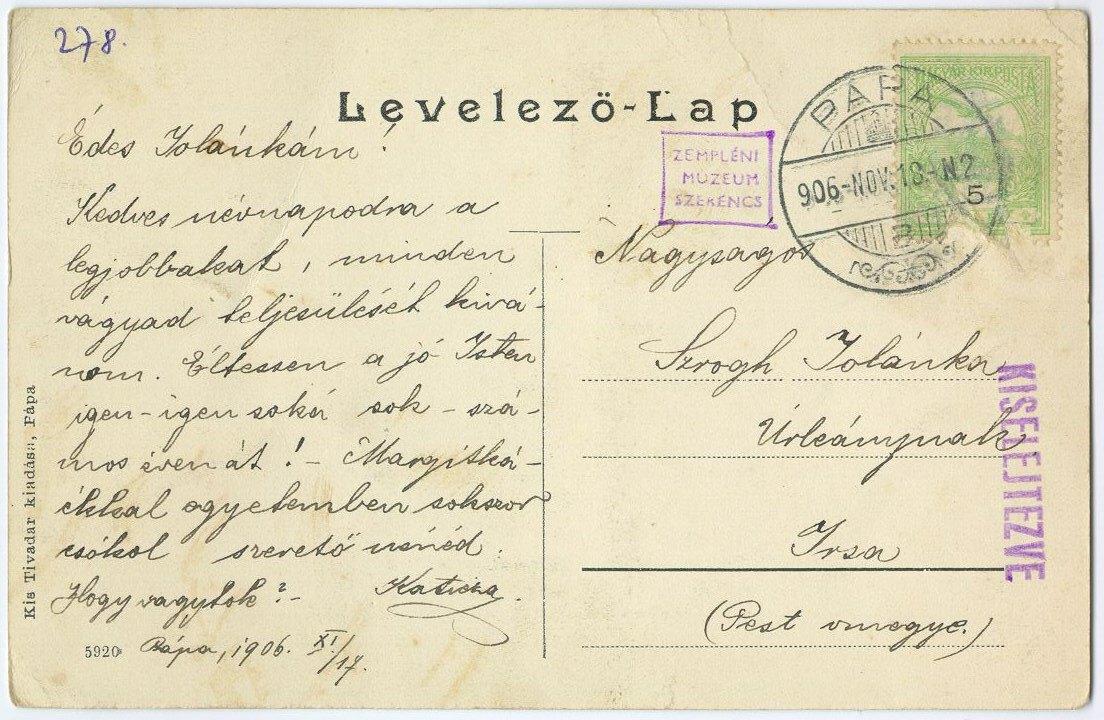 278.
Levelező-Lap
MAGYAR KIR. POSTA
PÁPA
906-NOV.18-N2
5
ZEMPLÉNI
MÚZEUM
SZERENCS
Édes Jolánkám!
Kedves névnapodra a
legjobbakat, minden
vágyad teljesülését kívá-
nom. Éltessen a jó Isten
igen-igen soká sok-szá-
mos éven át! - Margitká-
ékkal egyetemben sokszor
csókol szerető nénéd
Katicza.
Hogy vagytok? -
Pápa, 1906. XI/17.
Nagyságos
Szrogh Jolánka
Úrleánynak
Irsa
(Pest vmegye.)
KISELEJTEZVE
Kis Tivadar kiadása, Pápa
5920